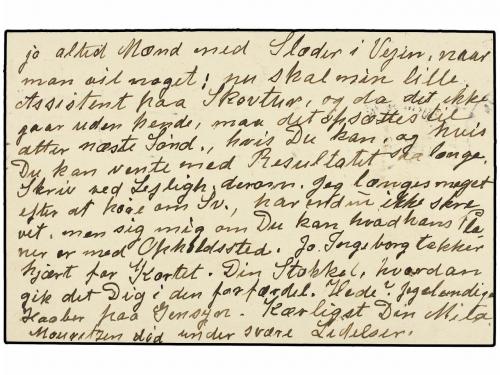 jo altid Mænd med Slæder i Vejen, naar
man vil noget; nu skal min lille
Assistent paa Skovtur, og da det ikke
gaar uden hende, maa det opsættes til
atter næste Sønd., hvis Du kan, og hvis
Du kan vente med Resultatet saa længe.
Skriv ved Lejligh. derom. Jeg længes meget
efter at høre om Sv., har endnu ikke skre
vet, men sig mig om Du kan hvad hans Pla
ner er med Opholdssted. Jo. Ingeborg takker
hjært for Kortet. Din Stakkel, hvordan
gik det Dig i den forfærdel. Hede? Jeg
Haaber paa Gensyn. Kærligst Din
Mouritzen død under svære Lidelser.